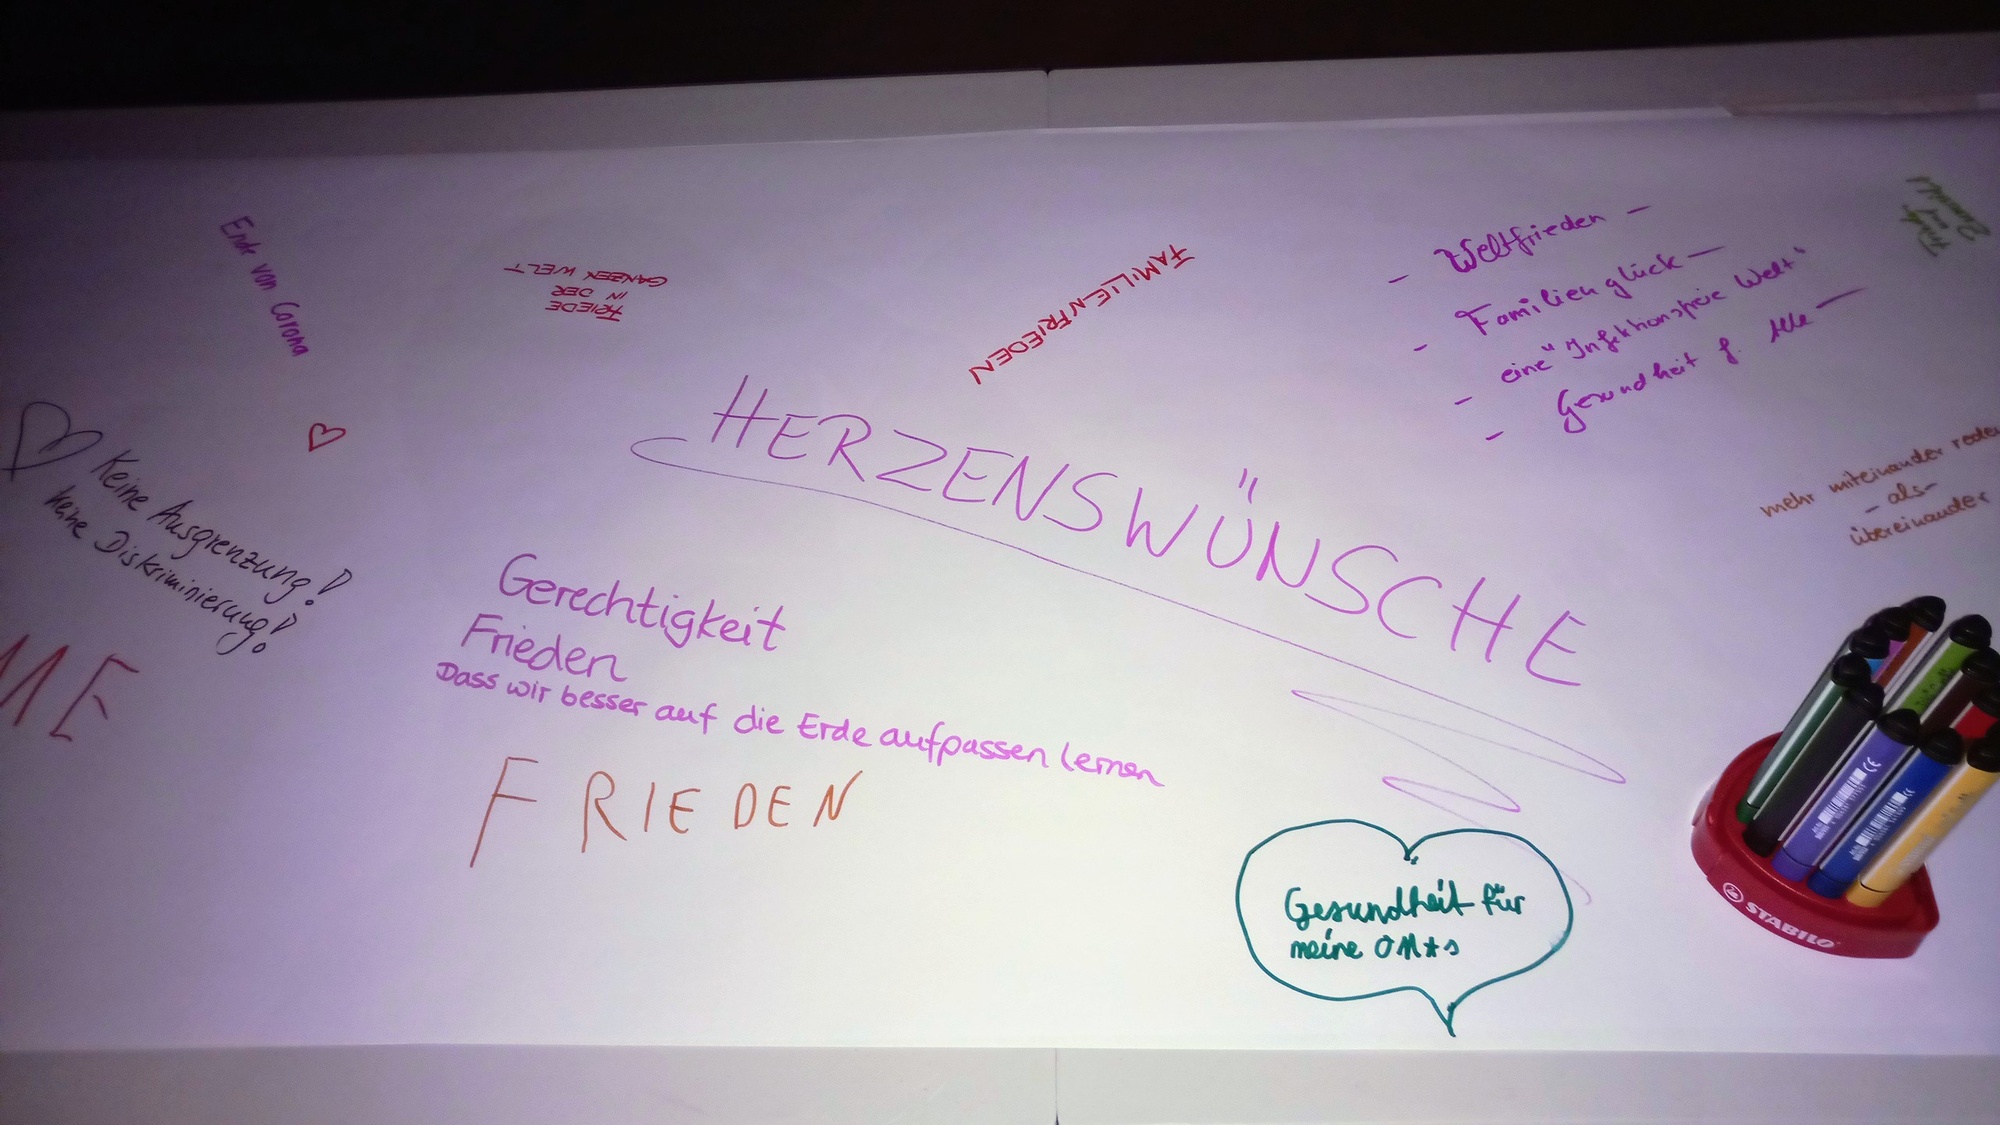 Ende von Corona
FRIEDE
IN DER
GANZEN WELT
FAMILIENFRIEDEN
- Weltfrieden -
- Familienglück -
- eine "Infektionsfreie Welt"
- Gesundheit f. Alle -
mehr miteinander reden
- als -
übereinander
HERZENSWÜNSCHE
Keine Ausgrenzung!
keine Diskriminierung!
ME
Gerechtigkeit
Frieden
Dass wir besser auf die Erde aufpassen lernen
FRIEDEN
Gesundheit für
meine OMAs
STABILO